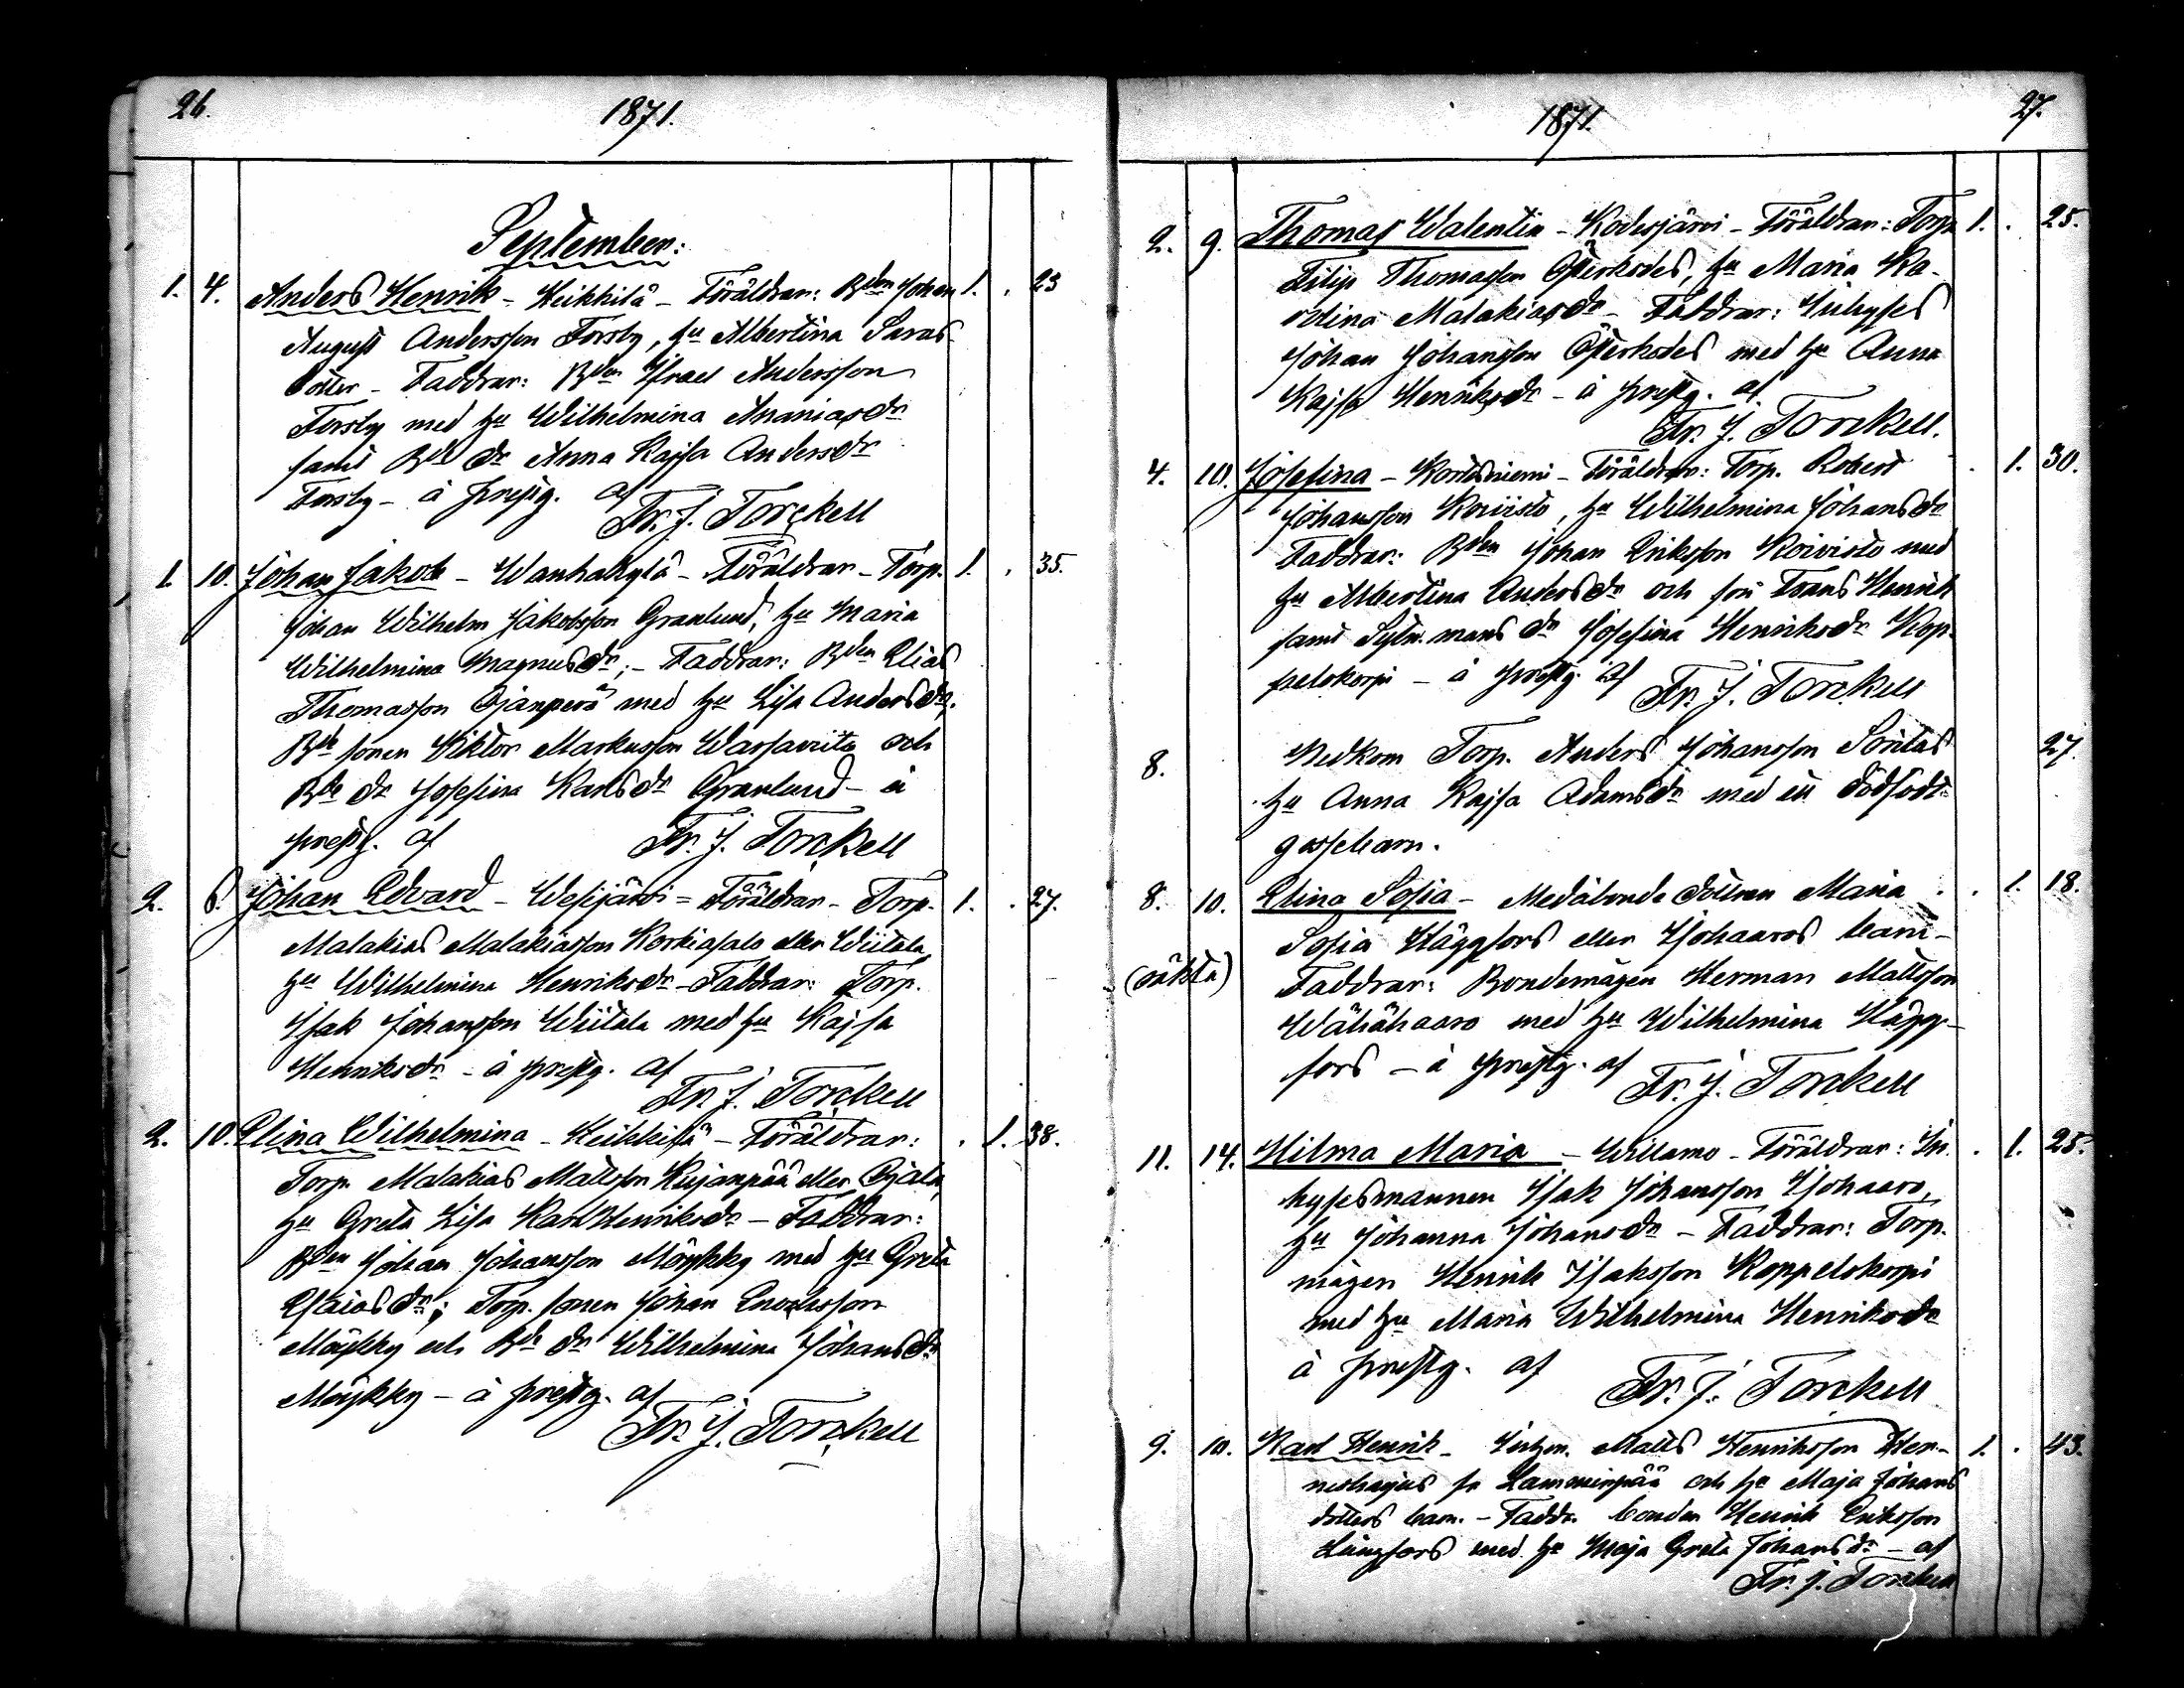 26.
1871.
September:
1. 4. Anders Henrik - Keikkilä - Föräldrar: Bden Johan 1. . 23
August Andersson Forsby, hu Albertina Saras
dotter - Faddrar: Bden Israel Andersson
Forsby med hu Wilhelmina Ananiasdr
samt Bde dr Anna Kajsa Andersdr
Forsby - å prestg. af
Fr. J. Torckell
1. 10. Johan Jakob - Wanhakylä - Föräldrar - Torp. 1. . 35.
Johan Wilhelm Jakobsson Granlund, hu Maria
Wilhelmina Magnusdr; - Faddrar: Bden Elias
Thomasson Ojanperä med hu Lisa Andersdr,
Bde sonen Viktor Markusson och
Bde dr Josefina Karlsdr Granlund - å
prestg. af Fr. J. Torckell
2. 8. Johan Edvard - Wesijärvi = Föräldrar - Torp. 1. . 27.
Malakias Malakiasson Korkiasalo eller Wiitala,
hu Wilhelmina Henriksdr - Faddrar: Torp.
Isak Johansson Wiitala med hu Kajsa
Henriksdr - å prestg. af
Fr. J. Torckell
2. 10. Elina Wilhelmina - Keikkilä - Föräldrar: . 1. 38.
Torp. Malakias Mattsson Kujanpää eller Ojala,
hu Greta Lisa Karl Henriksdr - Faddrar:
Bden Johan Johansson Möykky med hu Greta
Esaiasdr; Torp. sonen Johan
Möykky och Bde dr Wilhelmina Johansdr
Möykky - å prestg. af
Fr. J. Torckell
1871.
27.
2. 9. Thomas Walentin - Kodesjärvi - Föräldrar: Torp. 1. . 25.
Filip Thomasson Österkodes, hu Maria Ka-
rolina Malakiasdr - Faddrar: Inhyses
Johan Johansson Österkodes med hu Anna
Kajsa Henriksdr - å prestg. af
Fr. J. Torckell.
4. 10. Josefina - Kortesniemi - Föräldrar: Torp. Robert . 1. 30.
Johansson Koivisto, hu Wilhelmina Johansdr
Faddrar: Bden Johan Eriksson Koivisto med
hu Albertina Andersdr och son Frans Henrik
samt Sytn. mans dr Josefina Henriksdr Kop-
pelokorpi - å prestg. af Fr. J. Torckell
8. Nedkom Torp. Anders Johansson 27.
hu Anna Kajsa Adamsdr med ett dödfödt
gossebarn.
8. 10. Elina Sofia - Medåboende dottren Maria . . 1. 18.
Sofia Häggfors eller Isohaaros barn -
(oäkta) Faddrar: Bondemågen Herman Mattsson
Wähähaaro med hu Wilhelmina Hägg-
fors - å prestg. af Fr. J. Torckell
11. 14. Hilma Maria - Willamo - Föräldrar: In- . 1. 25.
hysesmannen Isak Johansson Isohaaro,
hu Johanna Johansdr - Faddrar: Torp.
mågen Henrik Isaksson Koppelokorpi
med hu Maria Wilhelmina Henriksdr
å prestg. af Fr. J. Torckell
9. 10. Karl Henrik - Matts Henriksson 1. . 43.
fr Lamminpää och hu Maja Johans
dotters barn. - Faddr. bonden Henrik Eriksson
Långfors med hu Maja Greta Johansdr - af
Fr. J. Torckell